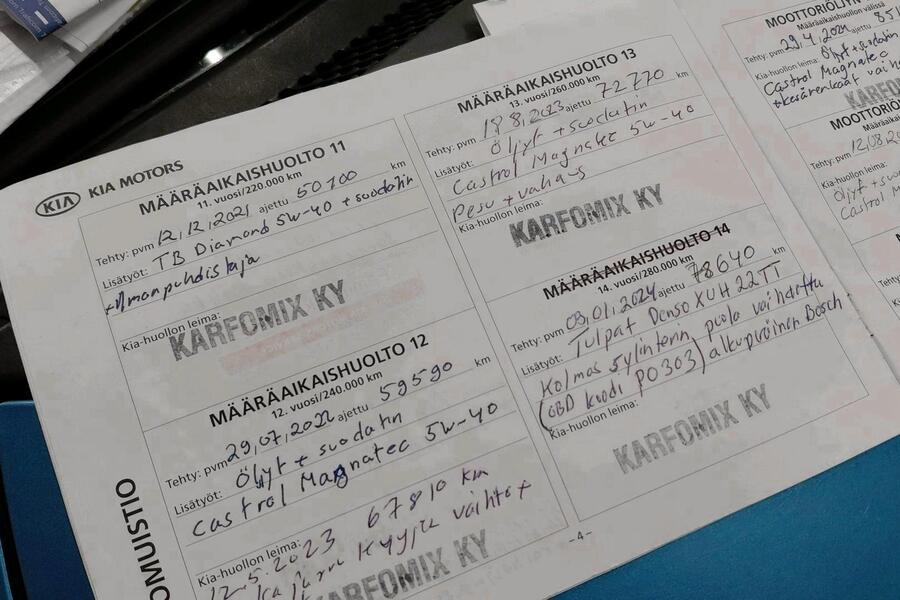 KIA KIA MOTORS
MÄÄRÄAIKAISHUOLTO 11
11. vuosi/220.000 km
Tehty: pvm 12.12.2021 ajettu 50100 km
Lisätyöt: TB Diamond 5W-40 + suodatin
+ilmanpuhdistaja
Kia-huollon leima:
KARFOMIX KY
MÄÄRÄAIKAISHUOLTO 12
12. vuosi/240.000 km
Tehty: pvm 29.07.2022 ajettu 59590 km
Lisätyöt: Öljyt + suodatin
Castrol Magnatec 5W-40
Kia-huollon leima:
12.5.2023 67810 km
vaihto +
KARFOMIX KY
OMUISTIO
MÄÄRÄAIKAISHUOLTO 13
13. vuosi/260.000 km
Tehty: pvm 18.8.2023 ajettu 72770 km
Lisätyöt: Öljyt + suodatin
Castrol Magnatec 5W-40
Pesu + vahaus
Kia-huollon leima:
KARFOMIX KY
MÄÄRÄAIKAISHUOLTO 14
14. vuosi/280.000 km
Tehty: pvm 09.01.2024 ajettu 78640 km
Lisätyöt: Tulpat Denso XUH22TT
Kolmas sylinterin puola vaihdettu
(OBD koodi P0303) alkuperäinen Bosch
Kia-huollon leima:
KARFOMIX KY
-4-
MOOTTORIÖLJYN
Määräaikaishuollon välissä
Tehty: pvm 29.4.2024
Kia-huollon leima: Öljyt + suodatin
Castrol Magnatec
+kesärenkaat
KARFO
MOOTTORIÖL
Määräaikai
Tehty: pvm 12.08.20
Kia-huollon leima:
Öljyt + suo
Castrol Ma
Tehty: pvm
Kia-huollon